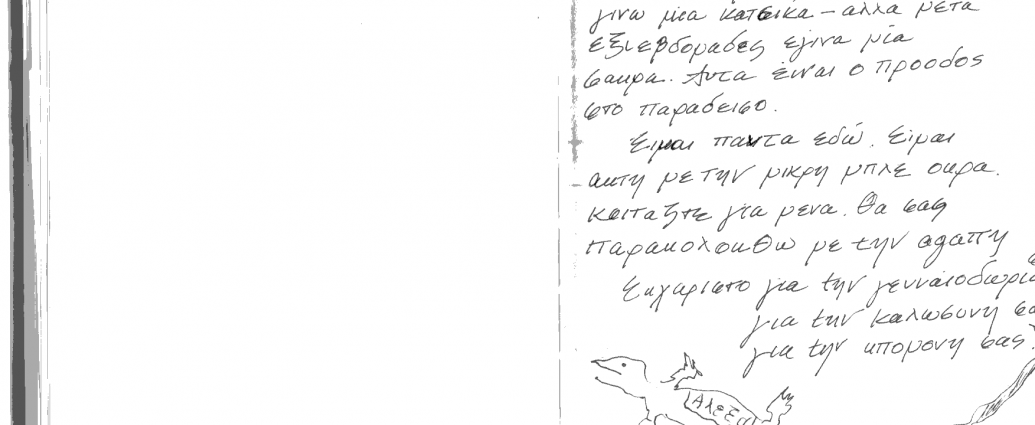 γίνω μία κατσίκα – αλλα μετα
εξι εβδομαδες εγινα μία
σαυρα. Αυτα είναι ο προοδος
στο παραδεισο.
Ειμαι παντα εδώ. Ειμαι
αυτη με την μικρη μπλε ουρα.
Κοιταξτε για μενα. Θα σας
παρακολουθω με την αγαπη
Ευχαριστο για την γενναιοδωρια
για την καλωσυνη σα
για την υπομονη σας.
Αλεξα